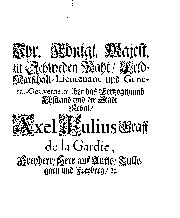 Ihr. Königl. Majest.
in Schweden Raht / Feld-
Marschall-Lieutenant und Gene-
ral-Gouverneur über das Hertzogthumb
Ehstland und die Stadt
Reval /
Axel Julius Graff
de la Gardie,
Freyherr / Herr auf
und / &c.